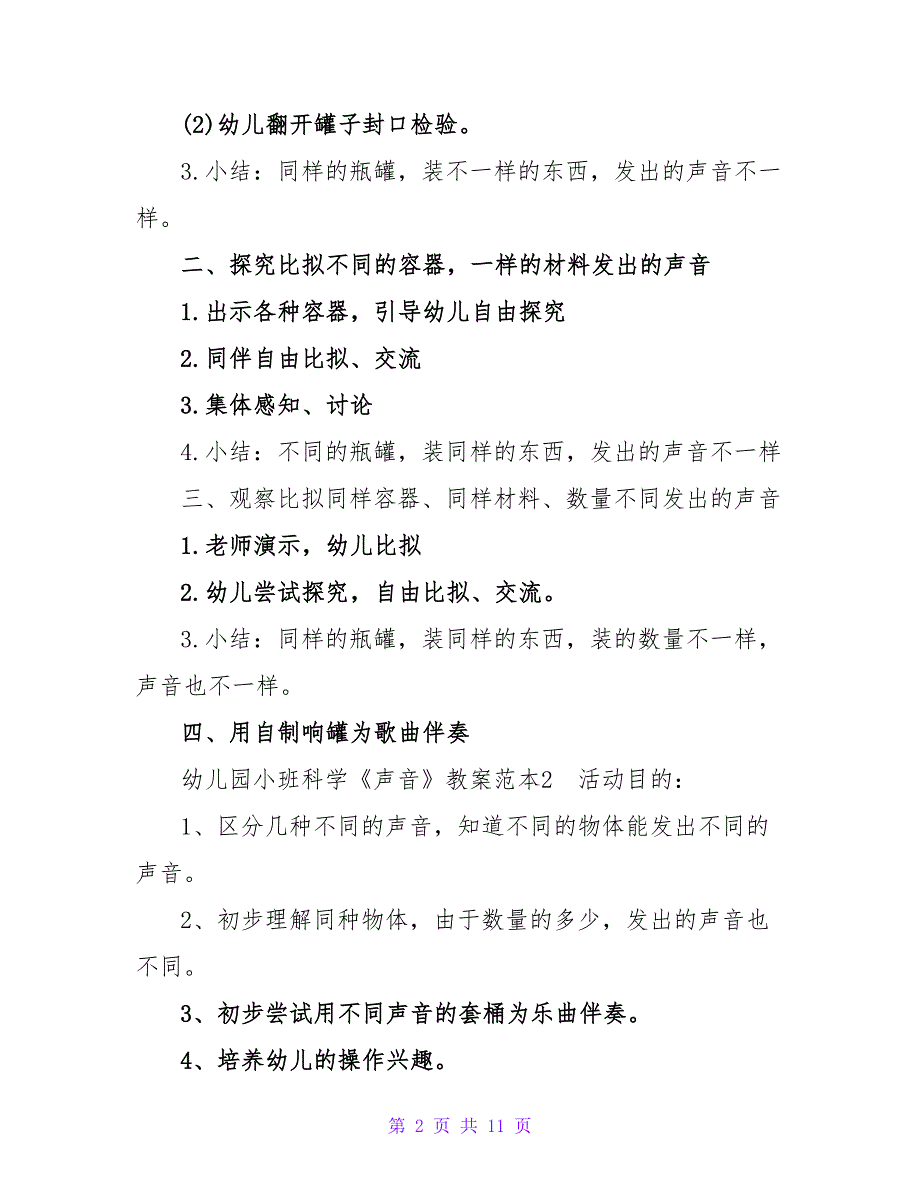 (2)幼儿翻开罐子封口检验。
3.小结：同样的瓶罐，装不一样的东西，发出的声音不一
样。
二、探究比拟不同的容器，一样的材料发出的声音
1.出示各种容器，引导幼儿自由探究
2.同伴自由比拟、交流
3.集体感知、讨论
4.小结：不同的瓶罐，装同样的东西，发出的声音不一样
三、观察比拟同样容器、同样材料、数量不同发出的声音
1.老师演示，幼儿比拟
2.幼儿尝试探究，自由比拟、交流。
3.小结：同样的瓶罐，装同样的东西，装的数量不一样，
声音也不一样。
四、用自制响罐为歌曲伴奏
幼儿园小班科学《声音》教案范本2　活动目的：
1、区分几种不同的声音，知道不同的物体能发出不同的
声音。
2、初步理解同种物体，由于数量的多少，发出的声音也
不同。
3、初步尝试用不同声音的套桶为乐曲伴奏。
4、培养幼儿的操作兴趣。
第 2 页 共 11 页